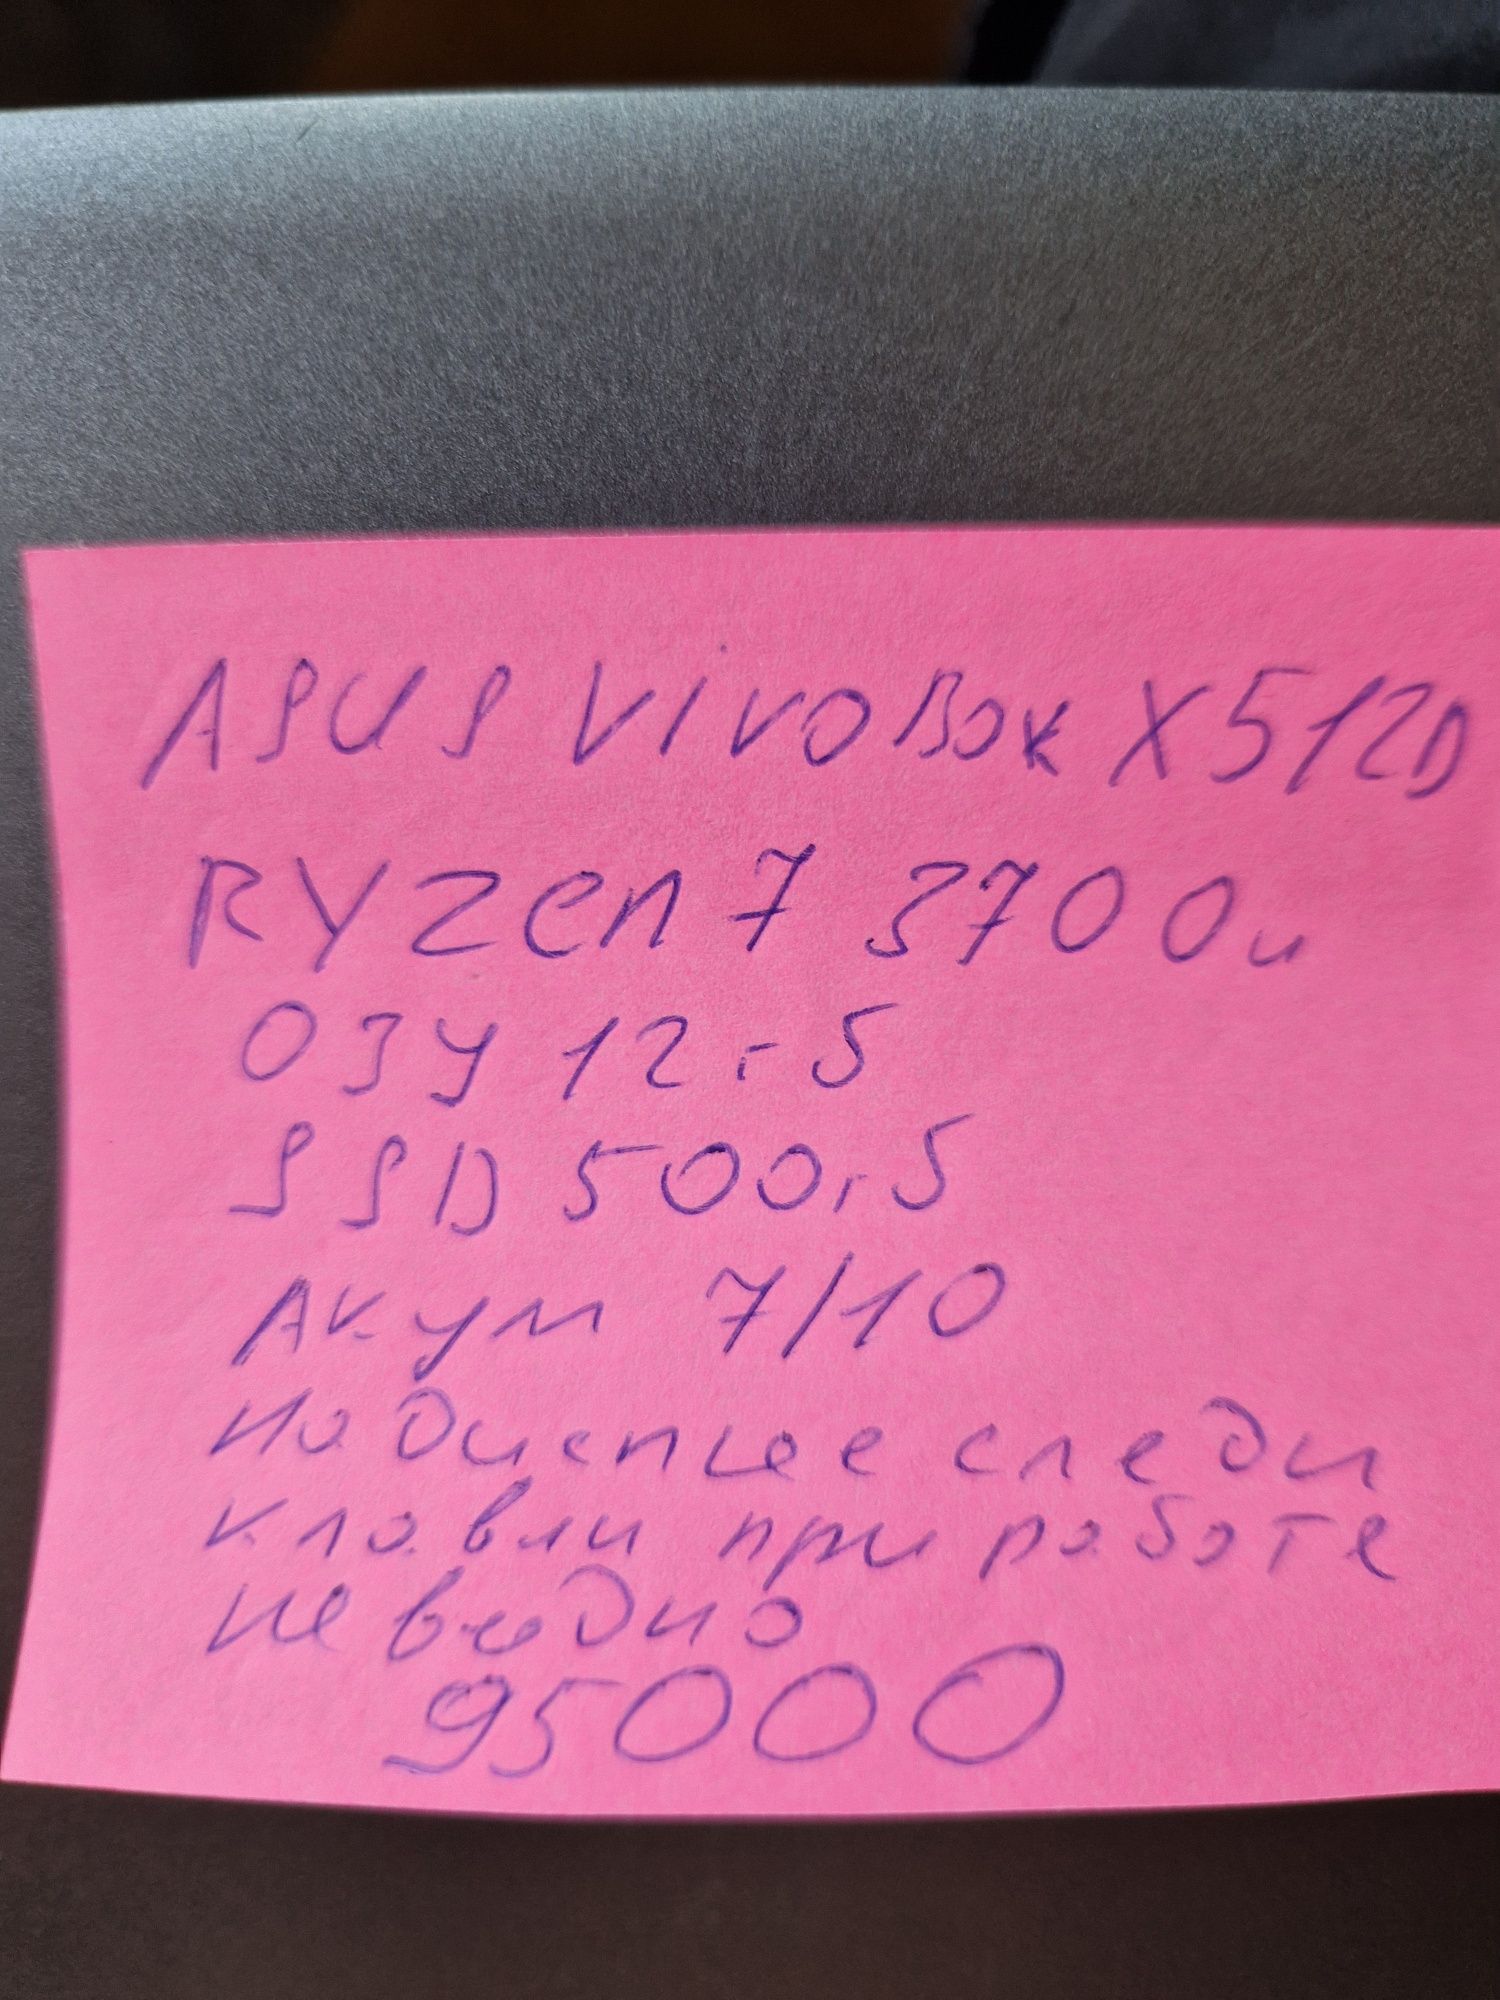 ASUS VivoBok X512D
RYZen 7 3700u
ОЗУ 12 гб
SSD 500 гб
Акум 7/10
На дисплее следы
клавли при работе
не видно
95000